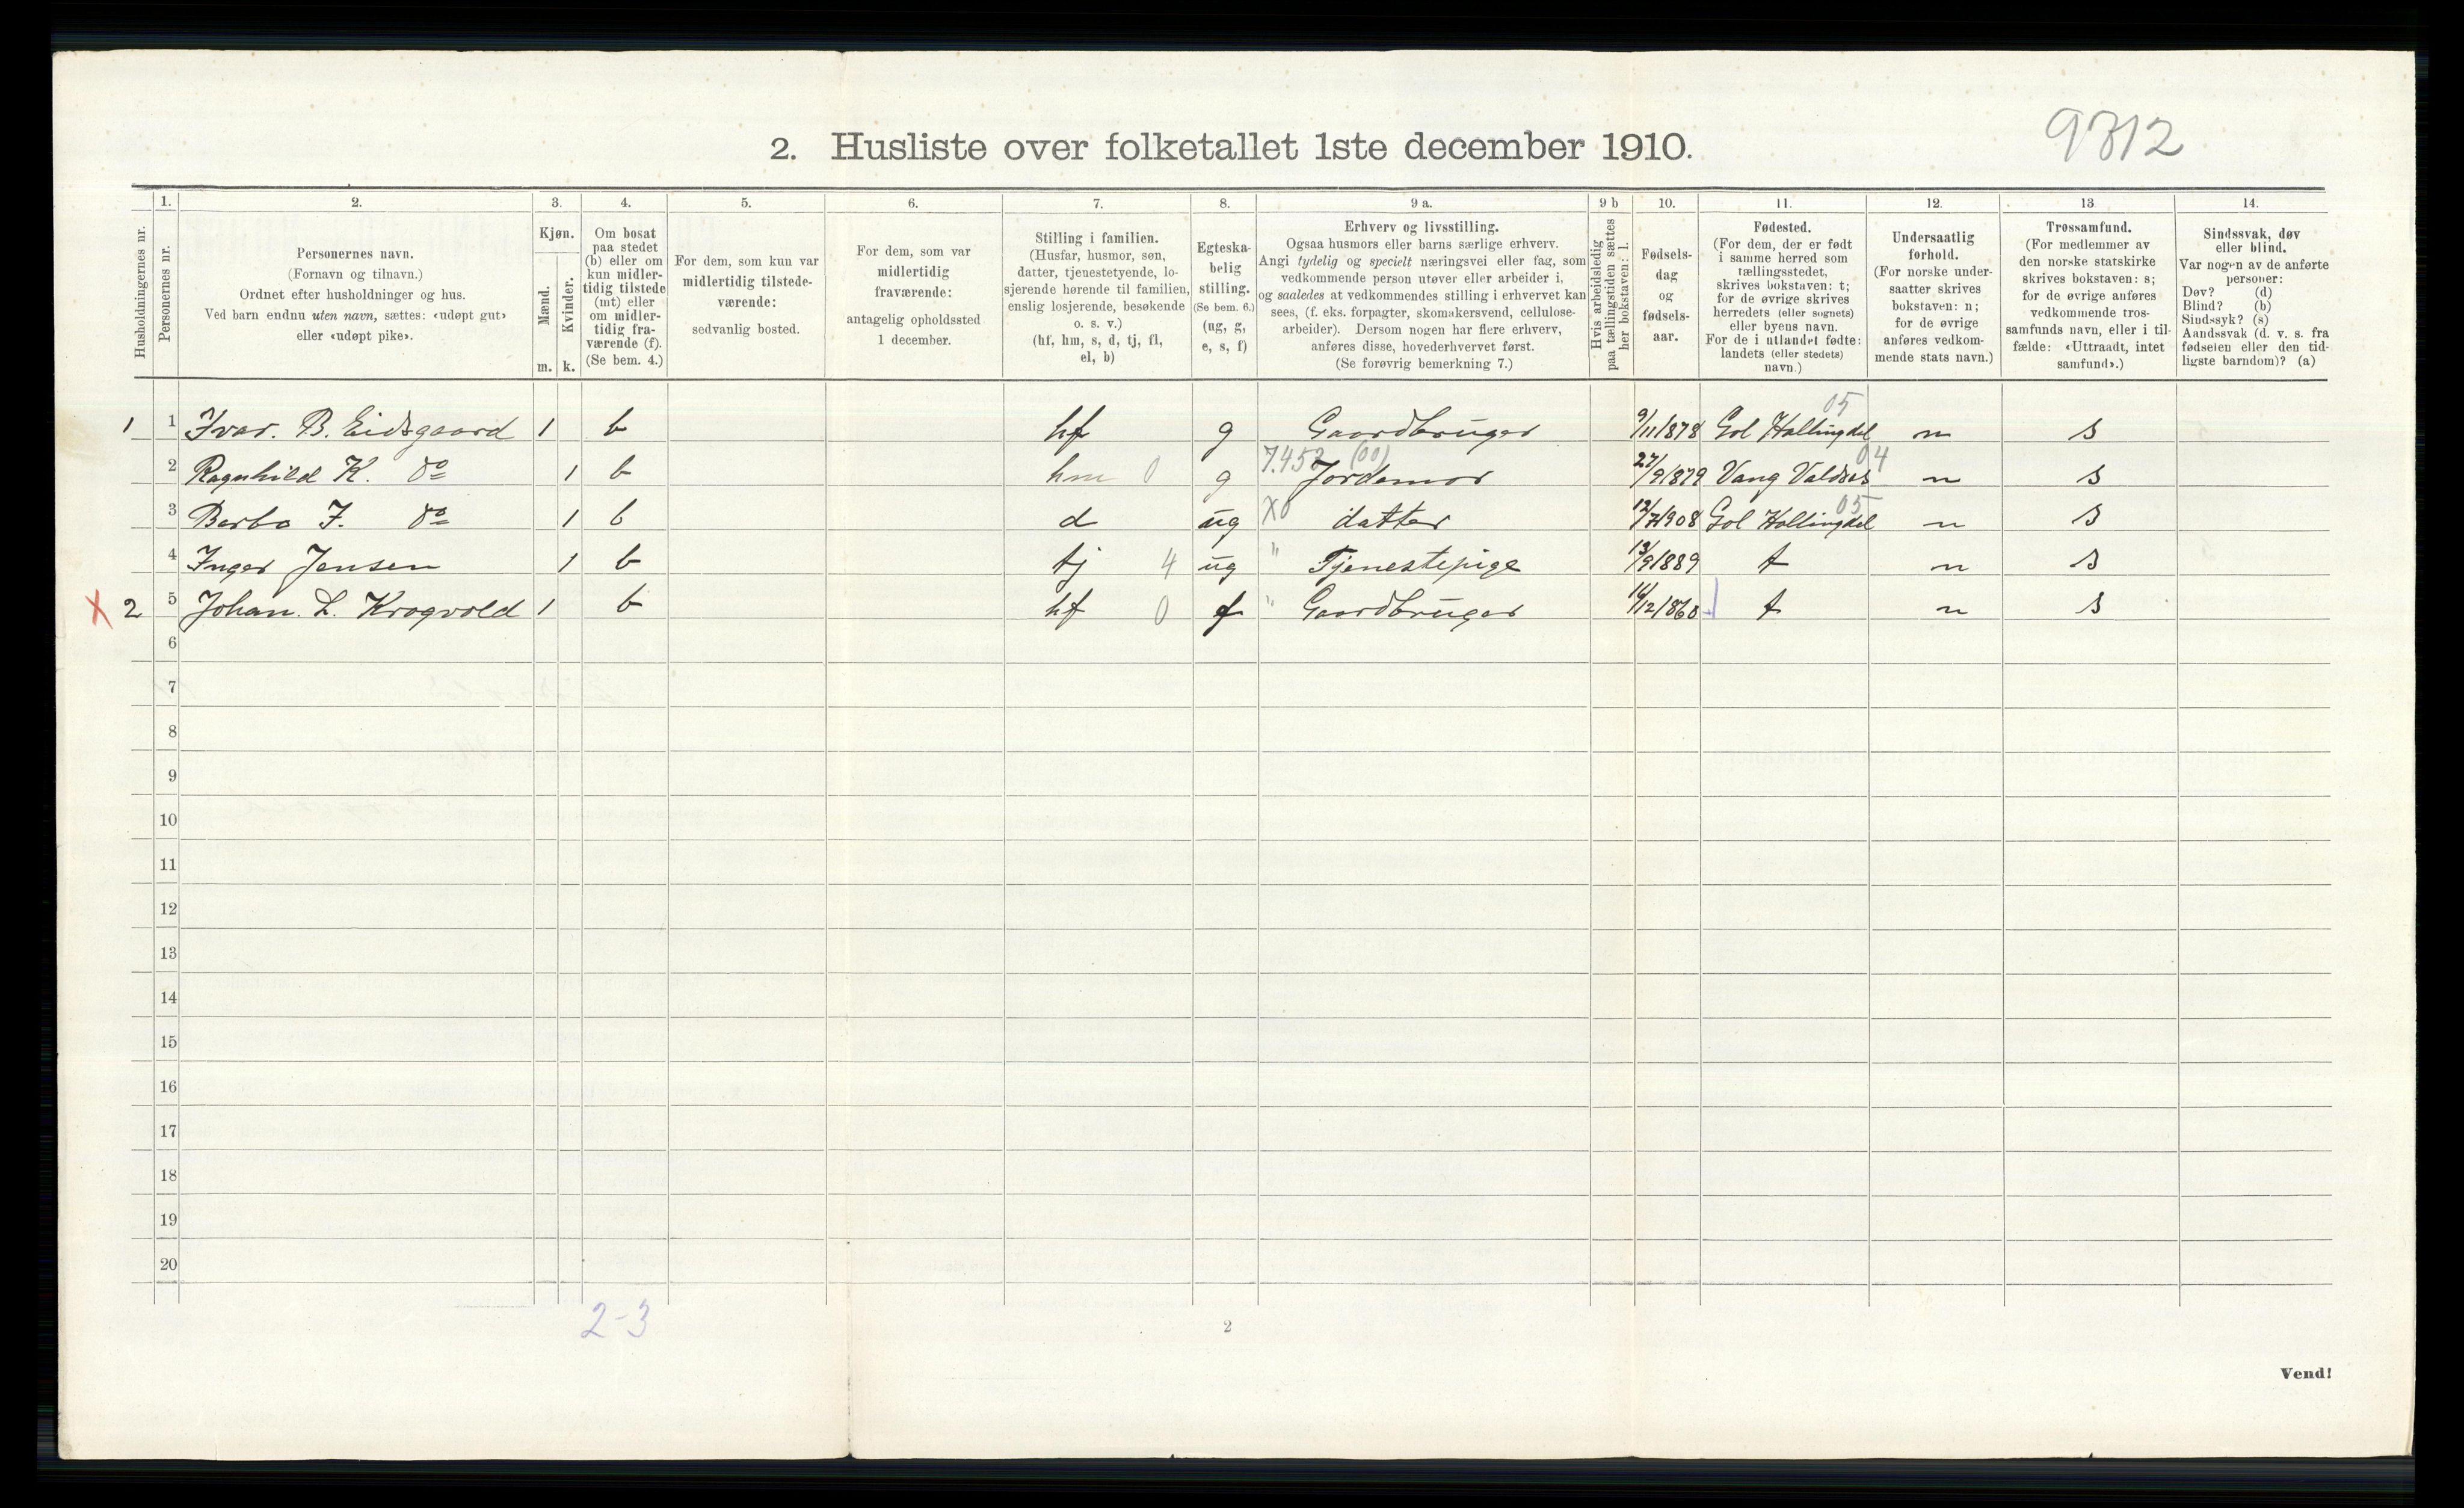 9312
2. Husliste over folketallet 1ste december 1910.
Husholdningernes nr.
1.
Personernes nr.
2.
Personernes navn.
(Fornavn og tilnavn.)
Ordnet efter husholdninger og hus.
Ved barn endnu uten navn, sættes: «udøpt gut»
eller «udøpt pike».
3.
Kjøn.
Mænd.
Kvinder.
m. k.
4.
Om bosat
paa stedet
(b) eller om
kun midler-
tidig tilstede
(mt) eller
om midler-
tidig fra-
værende (f).
(Se bem. 4.)
5.
For dem, som kun var
midlertidig tilstede-
værende:
sedvanlig bosted.
6.
For dem, som var
midlertidig
fraværende:
antagelig opholdssted
1 december.
7.
Stilling i familien.
(Husfar, husmor, søn,
datter, tjenestetyende, lo-
sjerende hørende til familien,
enslig losjerende, besøkende
o. s. v.)
(hf, hm, s, d, tj, fl,
el, b)
8.
Egteska-
belig
stilling.
(Se bem. 6.)
(ug, g,
e, s, f)
9 a.
Erhverv og livsstilling.
Ogsaa husmors eller barns særlige erhverv.
Angi tydelig og specielt næringsvei eller fag, som
vedkommende person utøver eller arbeider i,
og saaledes at vedkommendes stilling i erhvervet kan
sees, (f. eks. forpagter, skomakersvend, cellulose-
arbeider). Dersom nogen har flere erhverv,
anføres disse, hovederhvervet først.
(Se forøvrig bemerkning 7.)
9 b
Hvis arbeidsledig
paa tællingstiden sættes
her bokstaven: l.
10.
Fødsels-
dag
og
fødsels-
aar.
11.
Fødested.
(For dem, der er født
i samme herred som
tællingsstedet,
skrives bokstaven: t;
for de øvrige skrives
herredets (eller sognets)
eller byens navn.
For de i utlandet fødte:
landets (eller stedets)
navn.)
12.
Undersaatlig
forhold.
(For norske under-
saatter skrives
bokstaven: n;
for de øvrige
anføres vedkom-
mende stats navn.)
13
Trossamfund.
(For medlemmer av
den norske statskirke
skrives bokstaven: s;
for de øvrige anføres
vedkommende tros-
samfunds navn, eller i til-
fælde: «Uttraadt, intet
samfund».)
14.
Sindssvak, døv
eller blind.
Var nogen av de anførte
personer:
Døv? (d)
Blind? (b)
Sindssyk? (s)
Aandssvak (d. v. s. fra
fødselen eller den tid-
ligste barndom)? (a)
1 1 Ivar. B. Eidsgaard 1 b hf g Gaardbruger 9/11/878 Gol Hallingdal 05 n s
2 Ragnhild K. do 1 b hm 0 g 7.453 (00) Jordemor 27/9/879 Vang Valdres 04 n s
3 Barbo I. do 1 b d ug X0 datter 12/7/908 Gol Hallingdal 05 n s
4 Inger Jensen 1 b tj 4 ug " Tjenestepige 13/9/889 t n s
X 2 5 Johan. L. Krogvold 1 b hf 0 f " Gaardbruger 16/12/860 t n s
6
7
8
9
10
11
12
13
14
15
16
17
18
19
20
2-3
2
Vend!